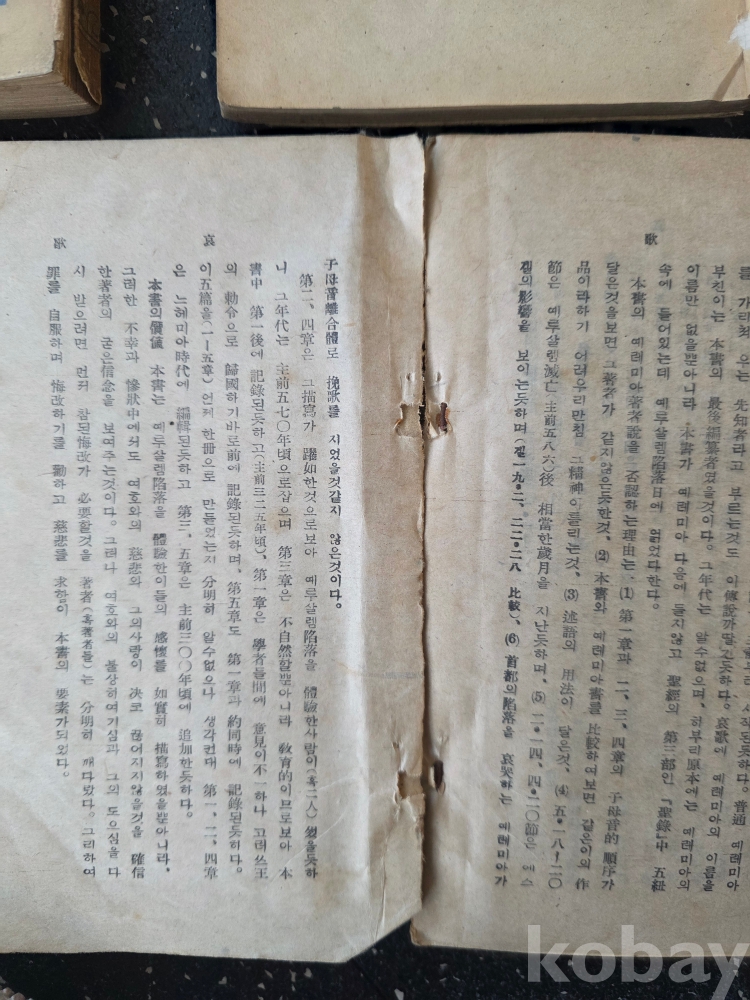 시작된듯하다. 普通 예레미아
를 가리켜 우는 先知者라고 부르는것도 이傳說까닭인듯하다. 哀歌에 예레미아의 이름을
부친이는 本書의 最後編纂者였을것이다. 그年代는 알수없으며, 히부리原本에는 예레미아의
이름만 없을뿐아니라 本書가 예레미아 다음에 들지않고 聖經의 第三部인 『聖錄』中 五紐
속에 들어있는데 예루살렘陷落日에 읽었다한다.
本書의 예레미아著者說을 否認하는理由는、(1) 第一章과 二、三、四章의 子母音的 順序가
달은것을보면 그著者가 같지않은듯한것、(2) 本書와 예레미아書를 比較하여보면 같은이의 作
品이라하기 어려우리만침 그精神이틀리는것、(3) 述語의 用法이 달은것、(4) 五•一八ー二〇
節은 예루살렘滅亡(主前五八六)後 相當한歲月을 지난듯하며、(5) 二•一四、四•二〇節은 에스
겔의影響을 보이는듯하며(겔一九•二、二二•二八 比較)、(6) 首都의陷落을 哀哭하는 예레미아가
歌
子母音離合體로 挽歌를 지었을것같지 않은것이다。
第二、四章은 그描寫가 躍如한것으로보아 예루살렘陷落을 體驗한사람이(혹二人) 썼을듯하
니 그年代는 主前五七〇年頃으로잡으며 第三章은 不自然할뿐아니라 敎育的이므로보아 本
書中 第一後에 記錄된듯하고(主前三二五年頃)、第一章은 學者들間에 意見이不一하나 고러쓰王
의 勅令으로 歸國하기바로前에 記錄된듯하며、第五章도 第一章과約同時에 記錄된듯하다。
이五篇을(一ー五章) 언제 한冊으로 만들었는지 分明히 알수없으나 생각컨대 第一、二、四章
은 느헤미아時代에 編輯된듯하고 第三、五章은 主前三〇〇年頃에 追加한듯하다。
本書의價値 本書는 예루살렘陷落을 體驗한이들의 感懷를 如實히 描寫하였을뿐아니라、
그러한 不幸과 慘狀中에서도 여호와의 慈悲와 그의사랑이 決코 끊어지지않을것을 確信
한著者의 굳은信念을 보여주는것이다。그러나 여호와의 불상히여기심과 그의 도으심을 다
시 받으려면 먼저 참된悔改가 必要할것을 著者(혹著者들)는 分明히 깨다랐다。그리하여
罪를 自服하며 悔改하기를 勸하고 慈悲를 求함이 本書의 要素가되었다。
哀
歌
kobay